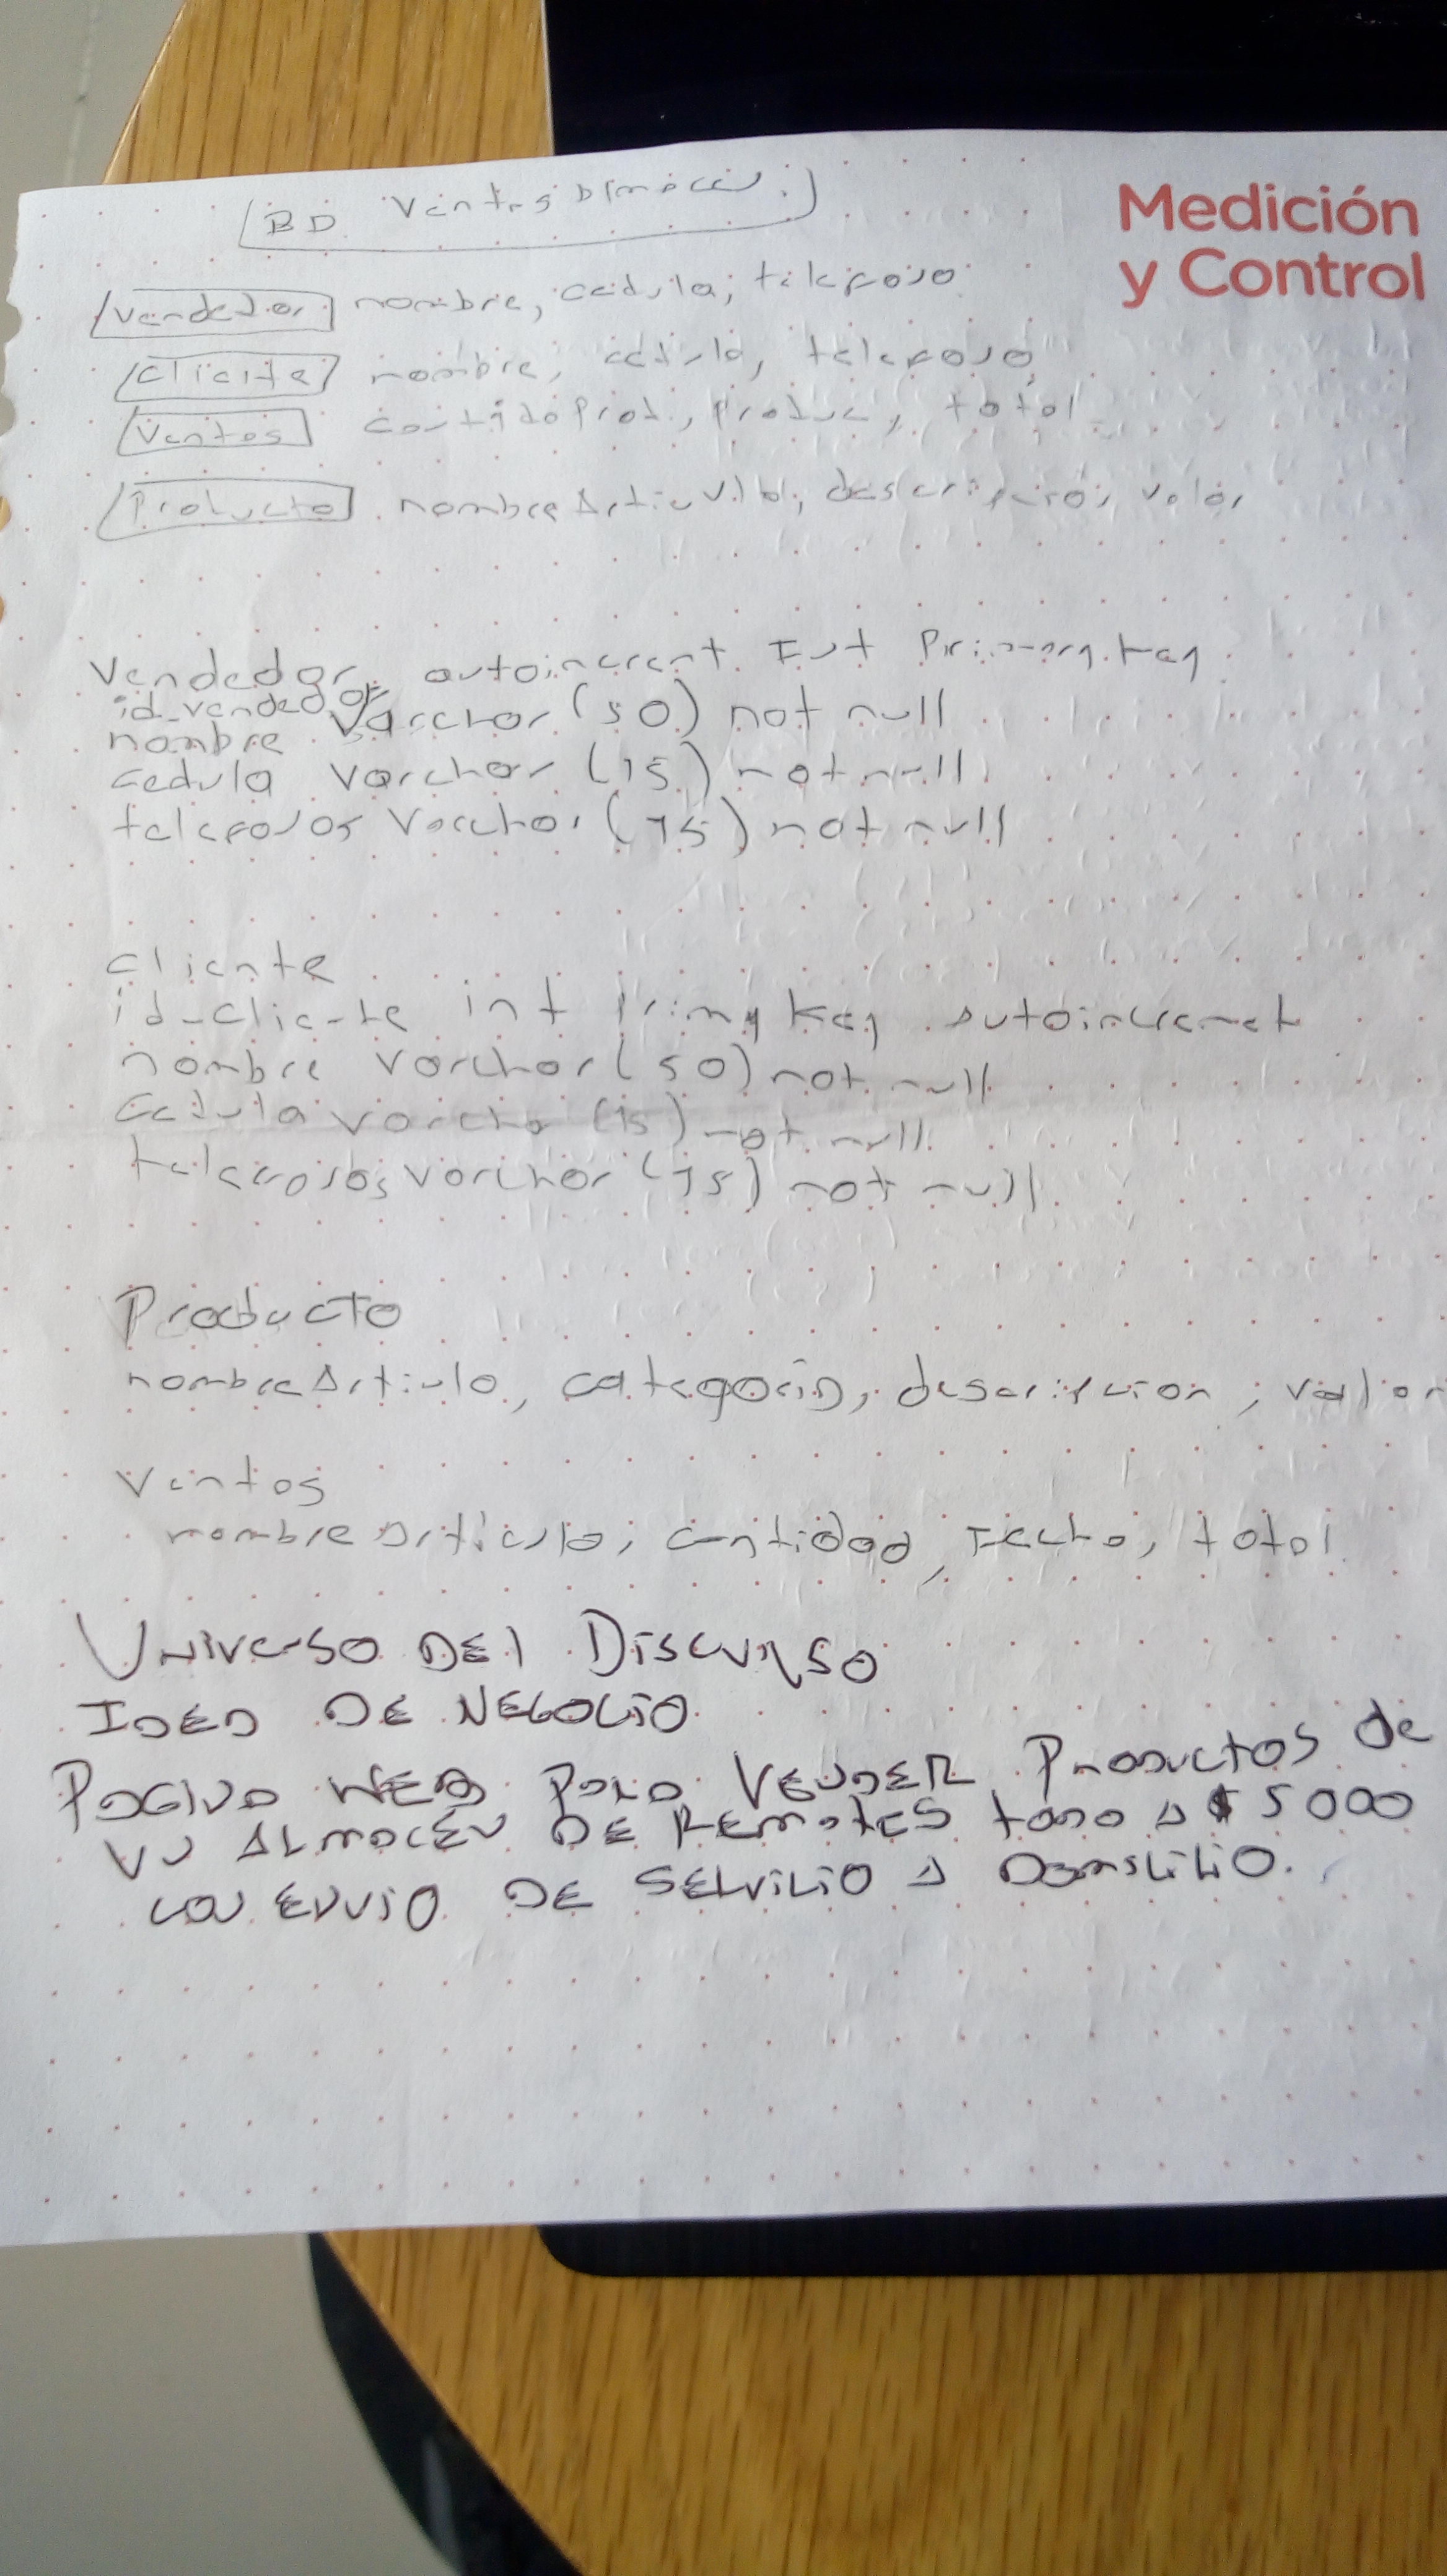 BD Ventas
Medición
y Control
Vendedor nombre, cedula, telefono
Cliente nombre, cedula, telefono
Ventas Prod., produc, total
Producto nombre descripcion, valor
Vendedor autoincrent Int Primary key
id_vendedor
nombre Varchar (50) not null
cedula Varchar (15) not null
telefonos Varchar (15) not null
cliente
id_cliente int key
nombre Varchar (50) not null
cedula varchar (15) not null
telefonos varchar (15) not null
Producto
nombreArticulo, categoria, descripcion, valor
Ventas
nombreArticulo, cantidad, Fecha, total
UNIVERSO DEL DISCURSO
IDEA DE NEGOCIO
PAGINA WEB PARA VENDER PRODUCTOS de
UN ALMACEN DE REMATES TODO A $ 5000
CON ENVIO DE SERVICIO A DOMICILIO.